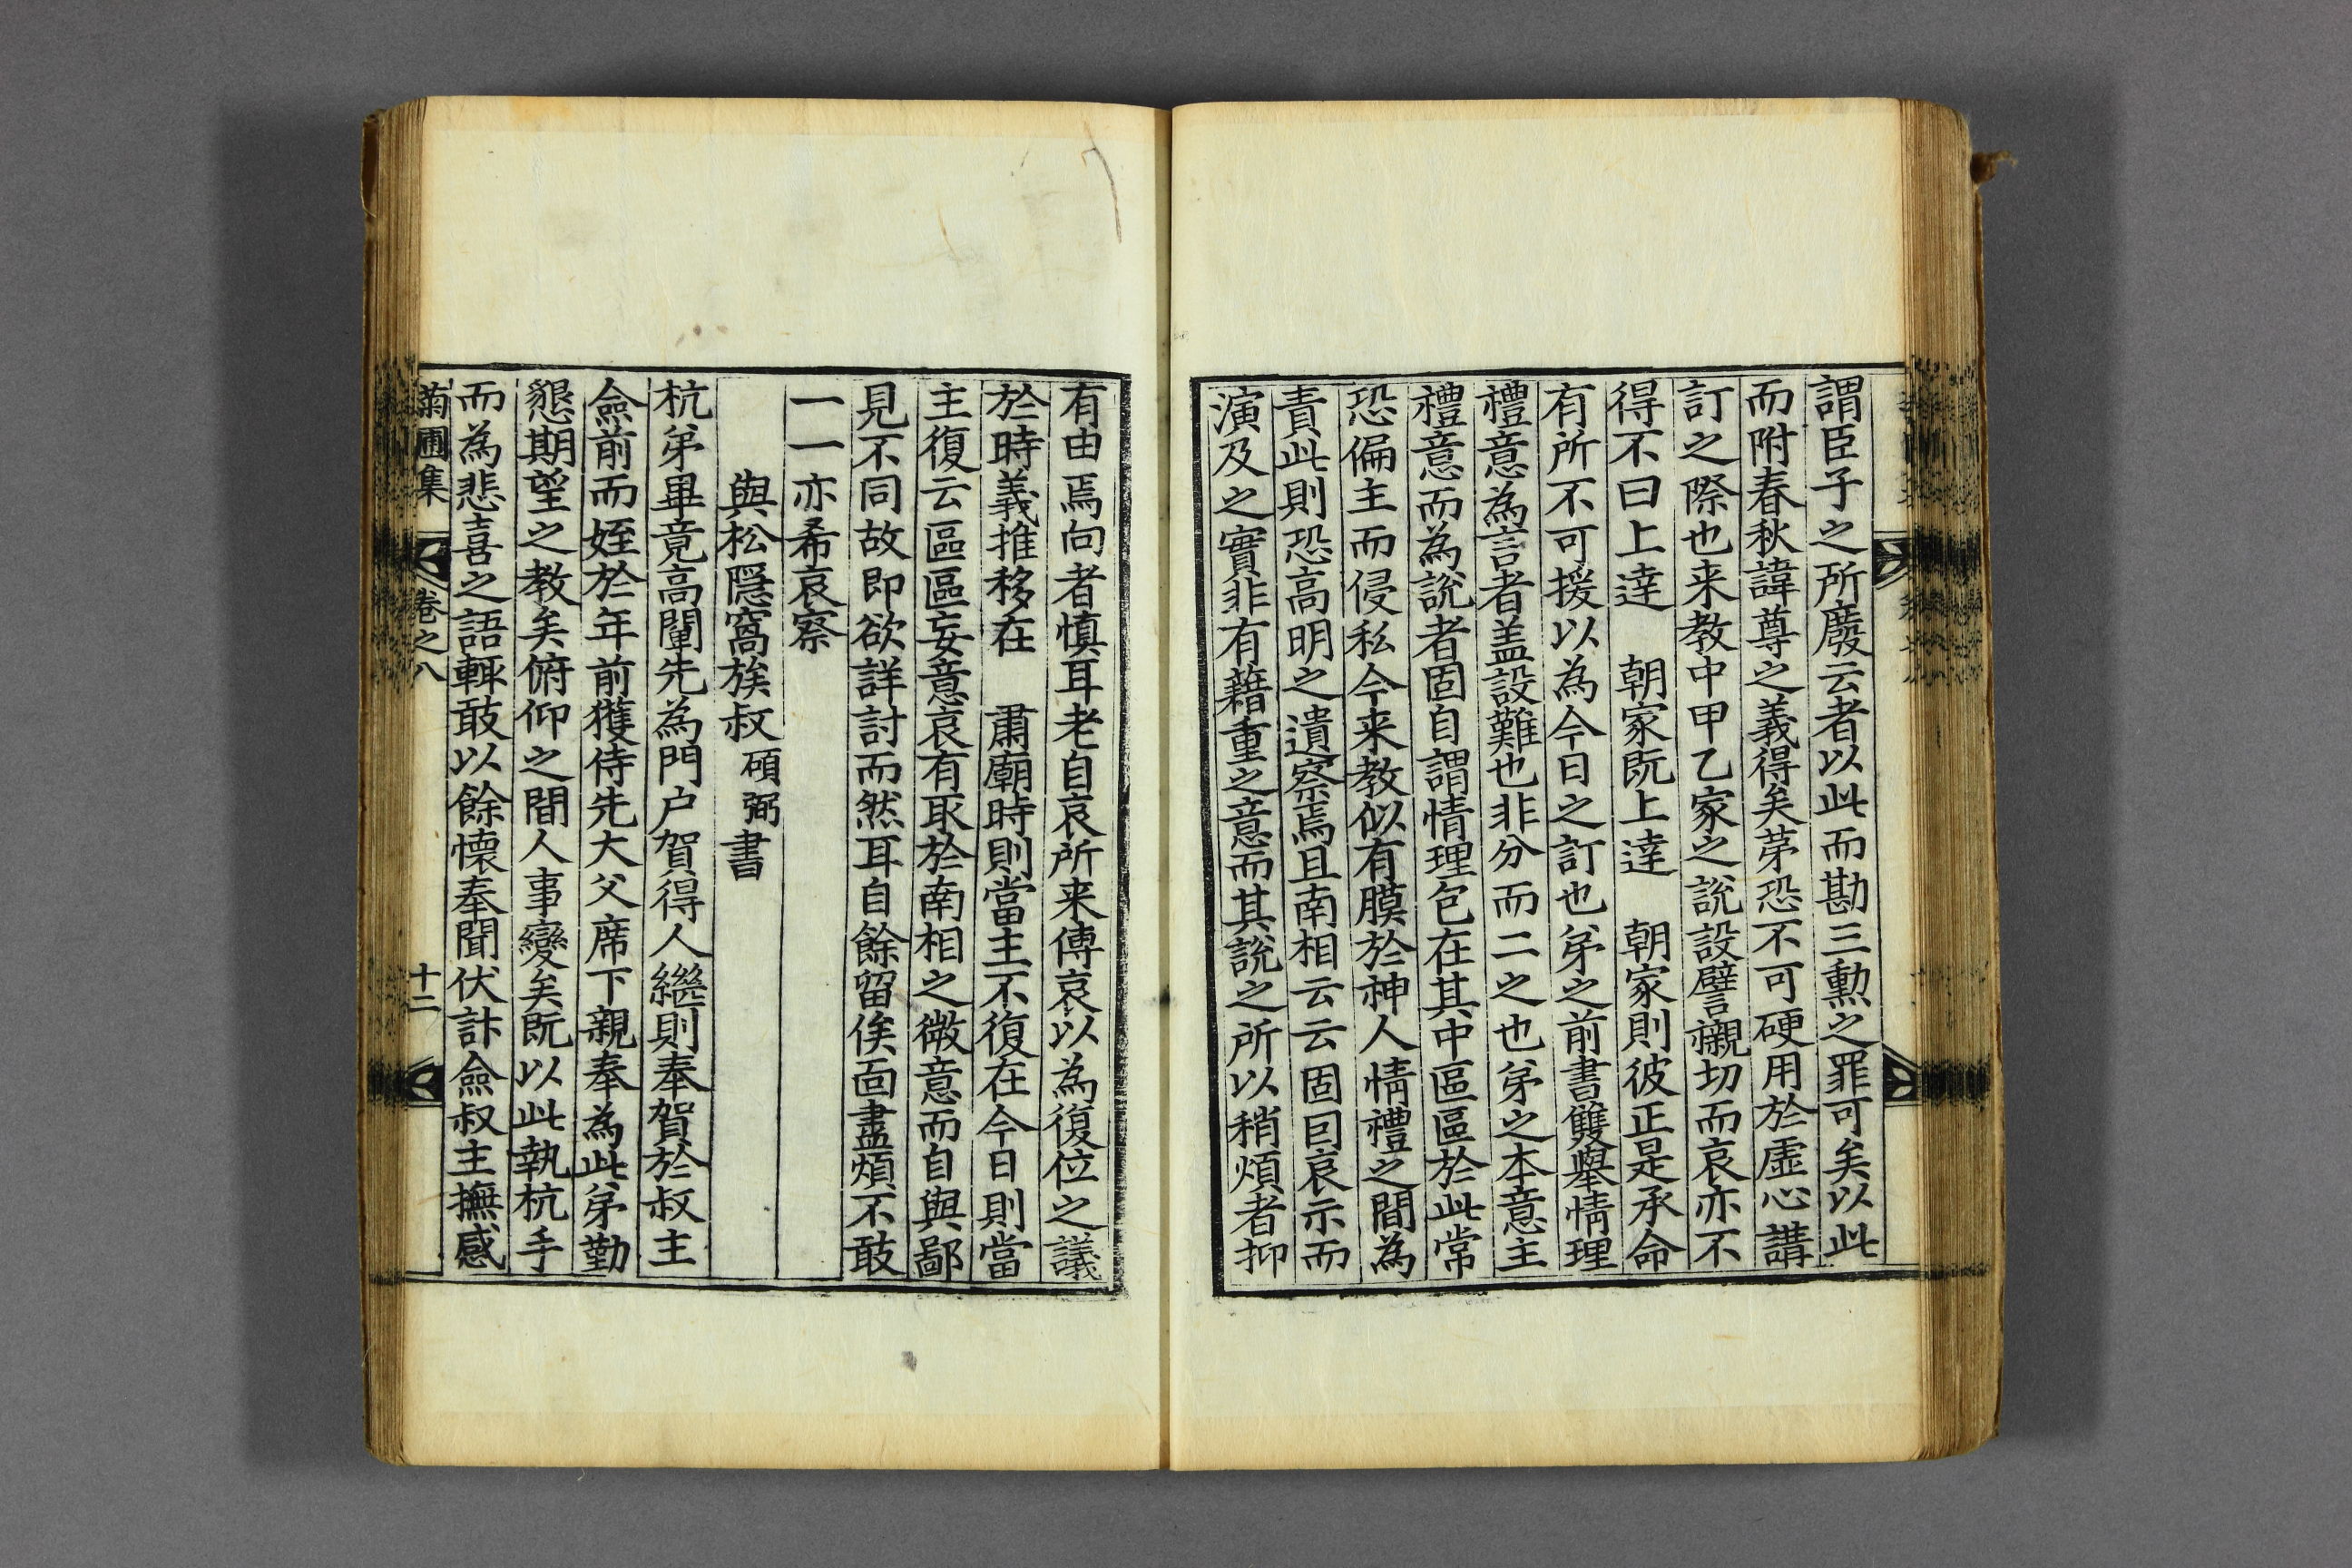 謂臣子之所廢云者以此而勘三勳之罪可矣以此
而附春秋諱尊之義得矣苐恐不可硬用於虛心講
訂之際也来教中甲乙家之說設譬襯切而哀亦不
得不曰上達　朝家既上達　朝家則彼正是承命
有所不可援以為今日之訂也弟之前書雙舉情理
禮意為言者盖設難也非分而二之也弟之本意主
禮意而為說者固自謂情理包在其中區區於此常
恐偏主而侵私今来教似有膜於神人情禮之間為
責此則恐高明之遺察焉且南相云云固囙哀示而
演及之實非有藉重之意而其說之所以稍煩者抑
有由焉向者慎耳老自哀所来傳哀以為復位之議
於時義推移在　肅廟時則當主不復在今日則當
主復云區區妄意哀有取於南相之微意而自與鄙
見不同故即欲詳討而然耳自餘留俟面盡煩不敢
一一亦希哀察
與松隱窩族叔碩弼書
杭弟畢竟高闡先為門户賀得人繼則奉賀於叔主
僉前而姪於年前獲侍先大父席下親奉為此弟勤
懇期望之教矣俯仰之間人事變矣既以此執杭手
而為悲喜之語輒敢以餘懷奉聞伏計僉叔主撫感
菊圃集　卷之八　十二